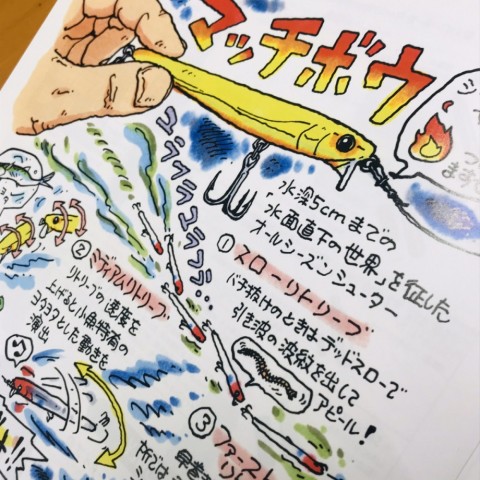 マッチボウ
「水深5cmまでの
水面直下の世界」を征した
オールシーズンシューター
①スローリトリーブ
バチ抜けのときはデッドスローで
引き波の波紋を出して
アピール!
②ミディアムリトリーブ
リトリーブの速度を
上げると小魚特有の
ヨタヨタとした動きを
演出
③ファースト